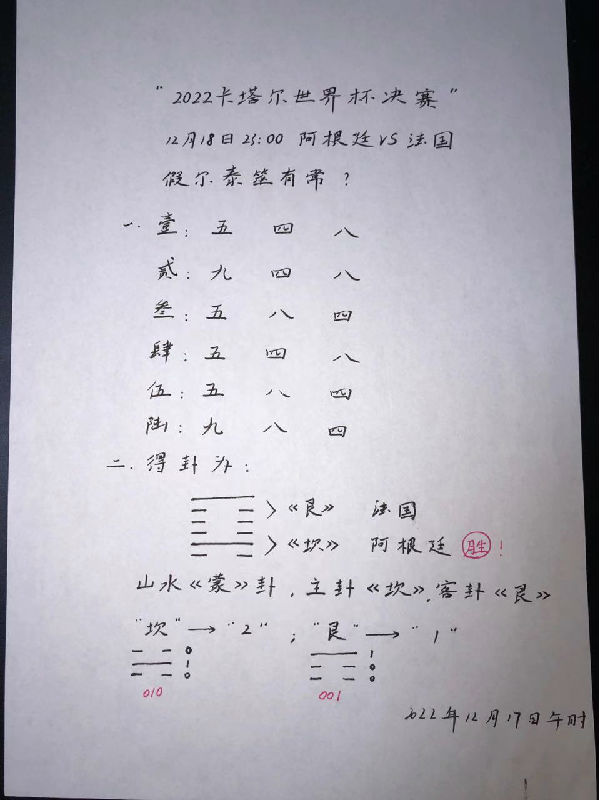 "2022卡塔尔世界杯决赛"
12月18日23:00 阿根廷VS法国
假尔泰筮有常?
一. 壹: 五 四 八
贰: 九 四 八
叁: 五 八 四
肆: 五 四 八
伍: 五 八 四
陆: 九 八 四
二. 得卦为:
>《艮》 法国
>《坎》 阿根廷 胜!
山水《蒙》卦, 主卦《坎》, 客卦《艮》
"坎"→"2" ; "艮"→"1"
0 1
1 0
0 0
010 001
2022年12月17日午时